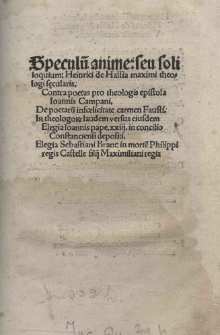 Speculũ anime: seu soli
loquium: Heinrici de Hassia maximi theo
logi sęcularis.
Contra poetas pro theologis epistola
Ioannis Campani.
De poetarũ infœlicitate carmen Fausti.
In theologos: laudem versus eiusdem
Elegia Ioannis pape. xxiij. in concilio
Constanciensi depositi.
Elegia Sebastiani Brant: in mortẽ Philippi
regis Castelle filij Maximiliani regis